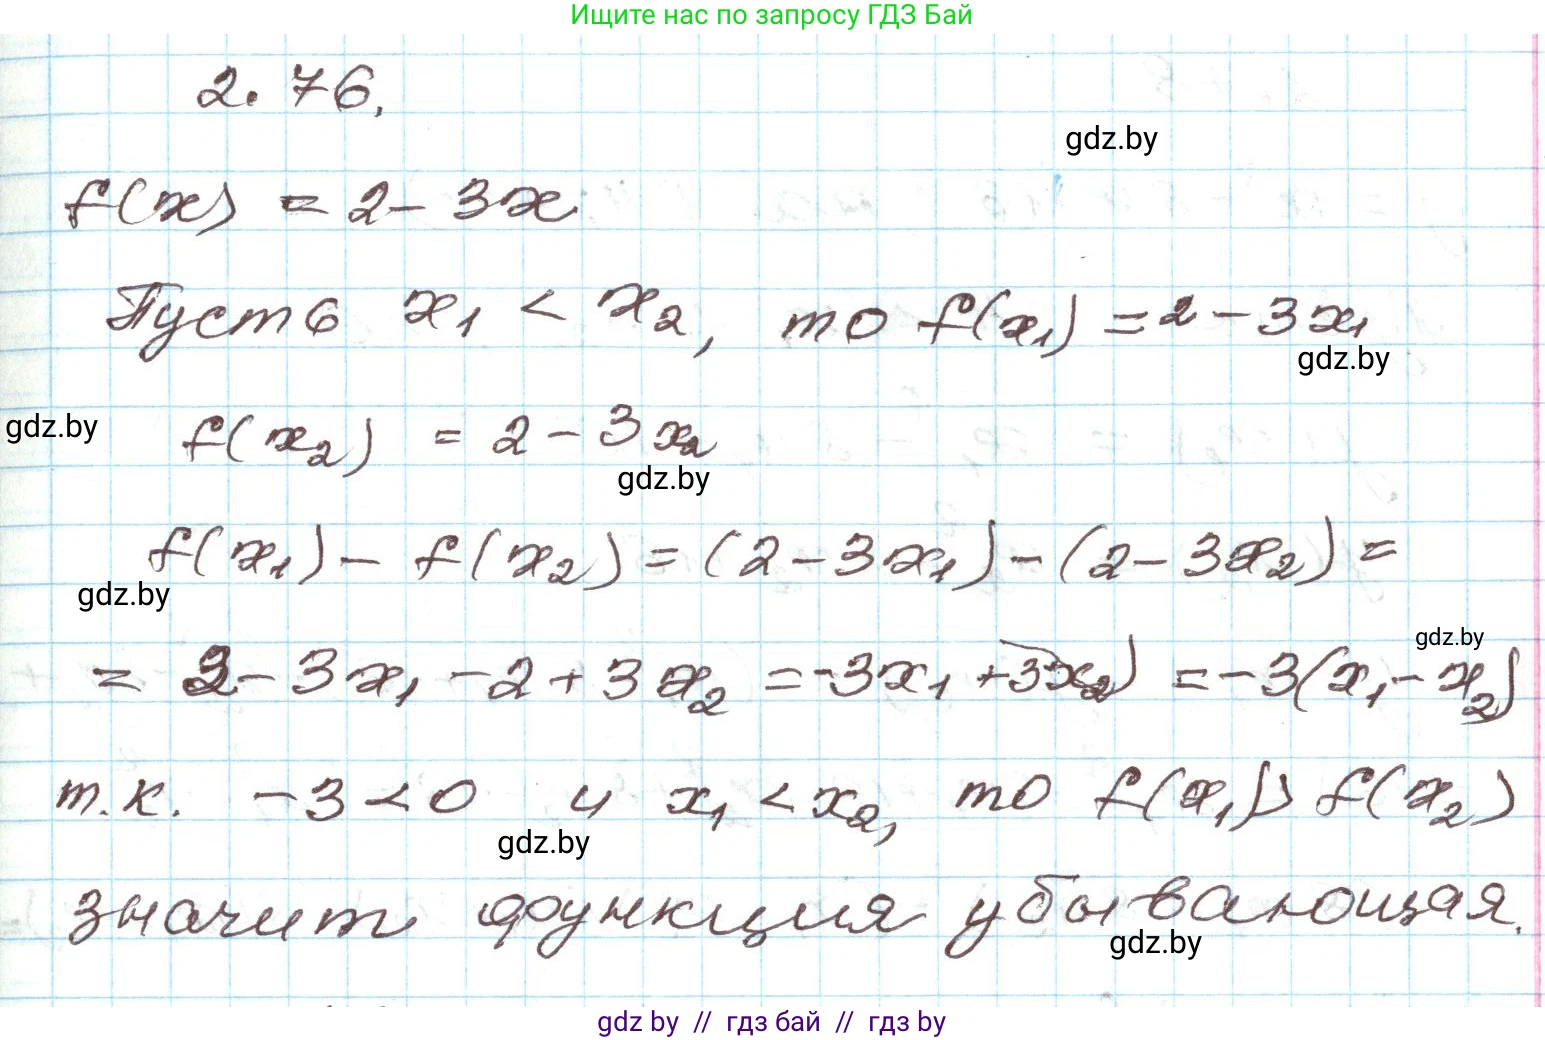 Ищите нас по запросу ГДЗ Бай
2.76.
gdz.by
f(x) = 2 - 3x
Пусть x₁ < x₂, то f(x₁) = 2 - 3x₁
gdz.by
gdz.by
f(x₂) = 2 - 3x₂
gdz.by
f(x₁) - f(x₂) = (2 - 3x₁) - (2 - 3x₂) =
gdz.by
gdz.by
= 2 - 3x₁ - 2 + 3x₂ = -3x₁ + 3x₂) = -3(x₁ - x₂)
т.к. -3 < 0 и x₁ < x₂, то f(x₁) > f(x₂)
gdz.by
значит функция убывающая.
gdz.by
gdz by // гдз бай // гдз by